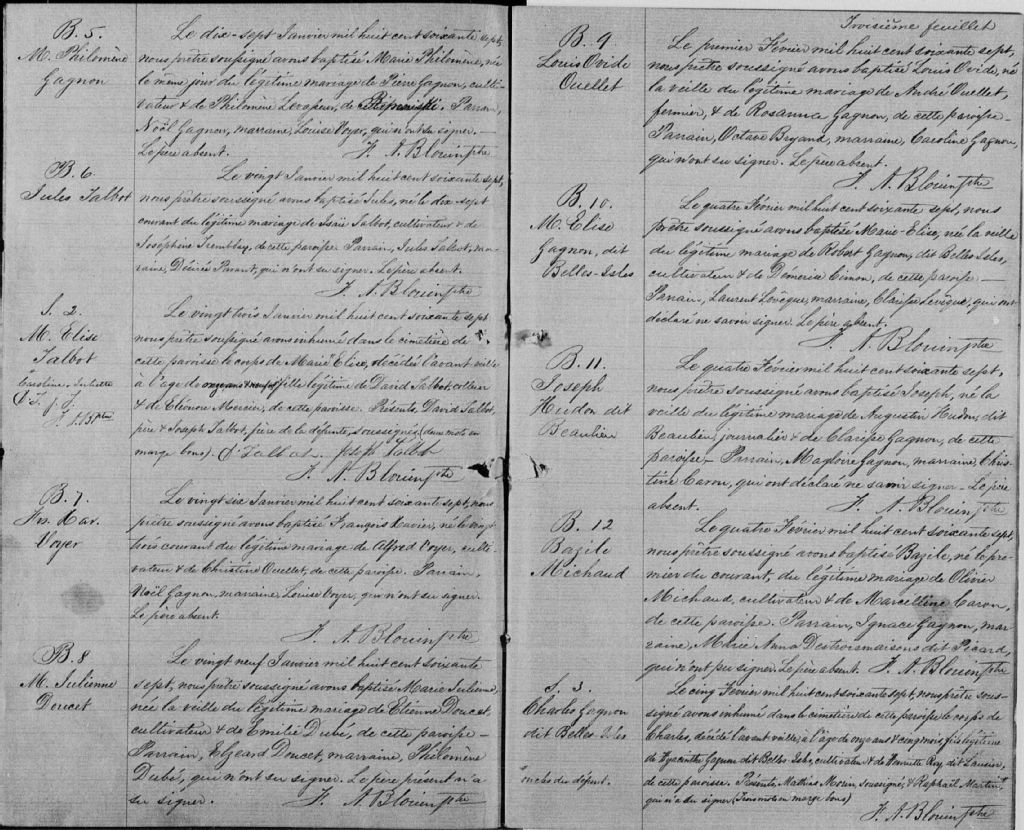 B. 5.
M. Philomène
Gagnon
Le dix-sept Janvier mil huit cent soixante sept,
nous prêtre soussigné avons baptisé Marie Philomène, née
le même jour du légitime mariage de Pierre Gagnon, culti-
vateur & de Philomène Levasseur, de Parrain,
Noël Gagnon, marraine, Louise Voyer, qui n'ont su signer.
Le père absent. F. A. Blouin ptre
B. 6
Jules Talbot
Le vingt Janvier mil huit cent soixante sept,
nous prêtre soussigné avons baptisé Jules, né le dix-sept
courant du légitime mariage de Isaïe Talbot, cultivateur & de
Joséphine Tremblay, de cette paroisse Parrain, Jules Talbot, mar-
raine, Désirée Parant, qui n'ont su signer. Le père absent.
F. A. Blouin ptre
S. 2.
M. Elise
Talbot
Caroline, Juliette
D. T. J. T.
F. A. B. ptre
Le vingt trois Janvier mil huit cent soixante sept
nous prêtre soussigné avons inhumé dans le cimetière de
cette paroisse le corps de Marie Elise, décédée l'avant veille
à l'âge de onze ans & fille légitime de David Talbot, cultivateur
& de Eléonore Mercier, de cette paroisse. Présents, David Talbot,
père & Joseph Talbot, frère de la défunte, soussignés (deux mots en
marge bons). D Talbot Joseph Talbot
F. A. Blouin ptre
B. 7.
Frs. Xav.
Voyer
Le vingt six Janvier mil huit cent soixante sept, nous
prêtre soussigné avons baptisé François Xavier, né le vingt
trois courant du légitime mariage de Alfred Voyer, culti-
vateur & de Christine Ouellet, de cette paroisse. Parrain,
Noël Gagnon, marraine Louise Voyer, qui n'ont su signer.
Le père absent.
F. A. Blouin ptre
B. 8
M. Julienne
Doucet
Le vingt neuf Janvier mil huit cent soixante
sept, nous prêtre soussigné avons baptisé Marie Julienne,
née la veille du légitime mariage de Etienne Doucet
cultivateur & de Emilie Dubé, de cette paroisse-
Parrain, Elzéard Doucet, marraine, Philomène
Dubé, qui n'ont su signer. Le père présent n'a
su signer. F. A. Blouin ptre
Troisième feuillet
B. 9
Louis Ovide
Ouellet
Le premier Février mil huit cent soixante sept,
nous prêtre soussigné avons baptisé Louis Ovide, né
la veille du légitime mariage de André Ouellet,
fermier, & de Rosanna Gagnon, de cette paroisse-
Parrain, Octave Bryand, marraine, Caroline Gagnon,
qui n'ont su signer. Le père absent.
F. A. Blouin ptre
B. 10.
M. Elise
Gagnon, dit
Belles-Isles
Le quatre Février mil huit cent soixante sept, nous
prêtre soussigné avons baptisé Marie-Elise, née la veille
du légitime mariage de Robert Gagnon, dit Belles Isles,
cultivateur & de Démerise Cimon, de cette paroisse-
Parrain, Laurent Levèque, marraine, Clarisse Levèque, qui ont
déclaré ne savoir signer. Le père absent.
F. A. Blouin ptre
B. 11.
Joseph
Hudon dit
Beaulieu
Le quatre Février mil huit cent soixante sept,
nous prêtre soussigné avons baptisé Joseph, né la
veille du légitime mariage de Augustin Hudon, dit
Beaulieu, journalier & de Clarisse Gagnon, de cette
paroisse- Parrain, Magloire Gagnon, marraine, Chris-
tine Caron, qui ont déclaré ne savoir signer- Le père
absent. F. A. Blouin ptre
B. 12
Bazile
Michaud
Le quatre Février mil huit cent soixante sept,
nous prêtre soussigné avons baptisé Bazile, né le pre-
mier du courant, du légitime mariage de Olivier
Michaud, cultivateur & de Marcelline Caron,
de cette paroisse. Parrain, Ignace Gagnon, mar-
raine, Marie Anna Destroismaisons dit Picard,
qui n'ont pu signer. Le père absent. F. A. Blouin ptre
S. 3.
Charles Gagnon
dit Belles Isles
oncles du défunt.
Le cinq Février mil huit cent soixante sept, nous prêtre sous-
signé avons inhumé dans le cimetière de cette paroisse le corps de
Charles, décédé l'avant veille, à l'âge de onze ans & cinq mois, fils légitime
de Hyacinthe Gagnon dit Belles Isles, cultivateur & de Henriette Roy, dit Lauzier,
de cette paroisse. Présents, Mathias Morin, soussigné, & Raphaël Martin,
qui n'a su signer (Trois mots en marge bons)
F. A. Blouin ptre